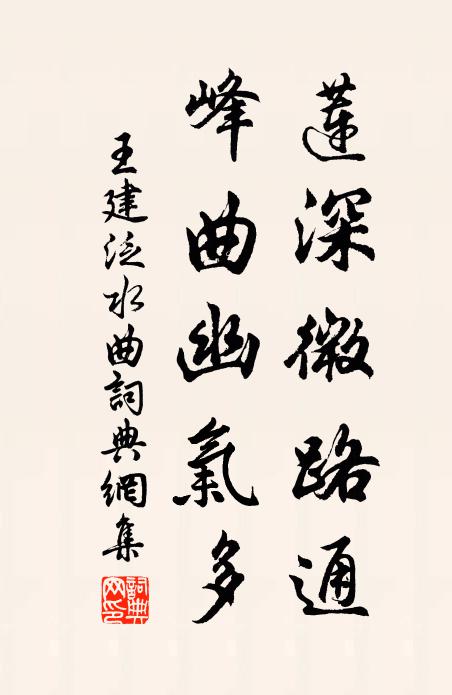 蓮深微路通
峰曲幽氣多
王建泛水曲詞典網集
詞典网印